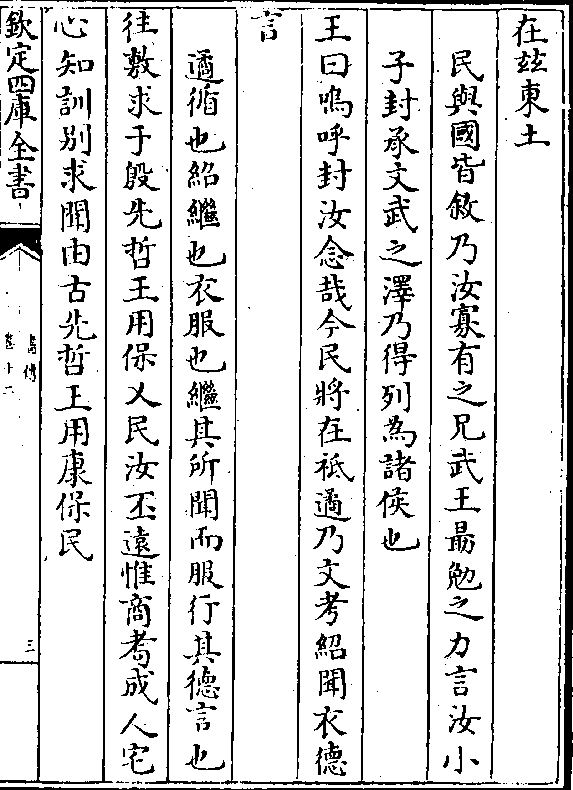 在玆東土
民與國皆敘乃汝寡有之兄武王勗勉之力言汝小
子封承文武之澤乃得列為諸侯也
王曰嗚呼封汝念哉今民將在祗遹乃文考紹聞衣德
言
遹循也紹繼也衣服也繼其所聞而服行其德言也
往敷求于殷先哲王用保乂民汝丕遠惟商耇成人宅
心知訓别求聞由古先哲王用康保民
欽定四庫全書
書傳
卷十二
三